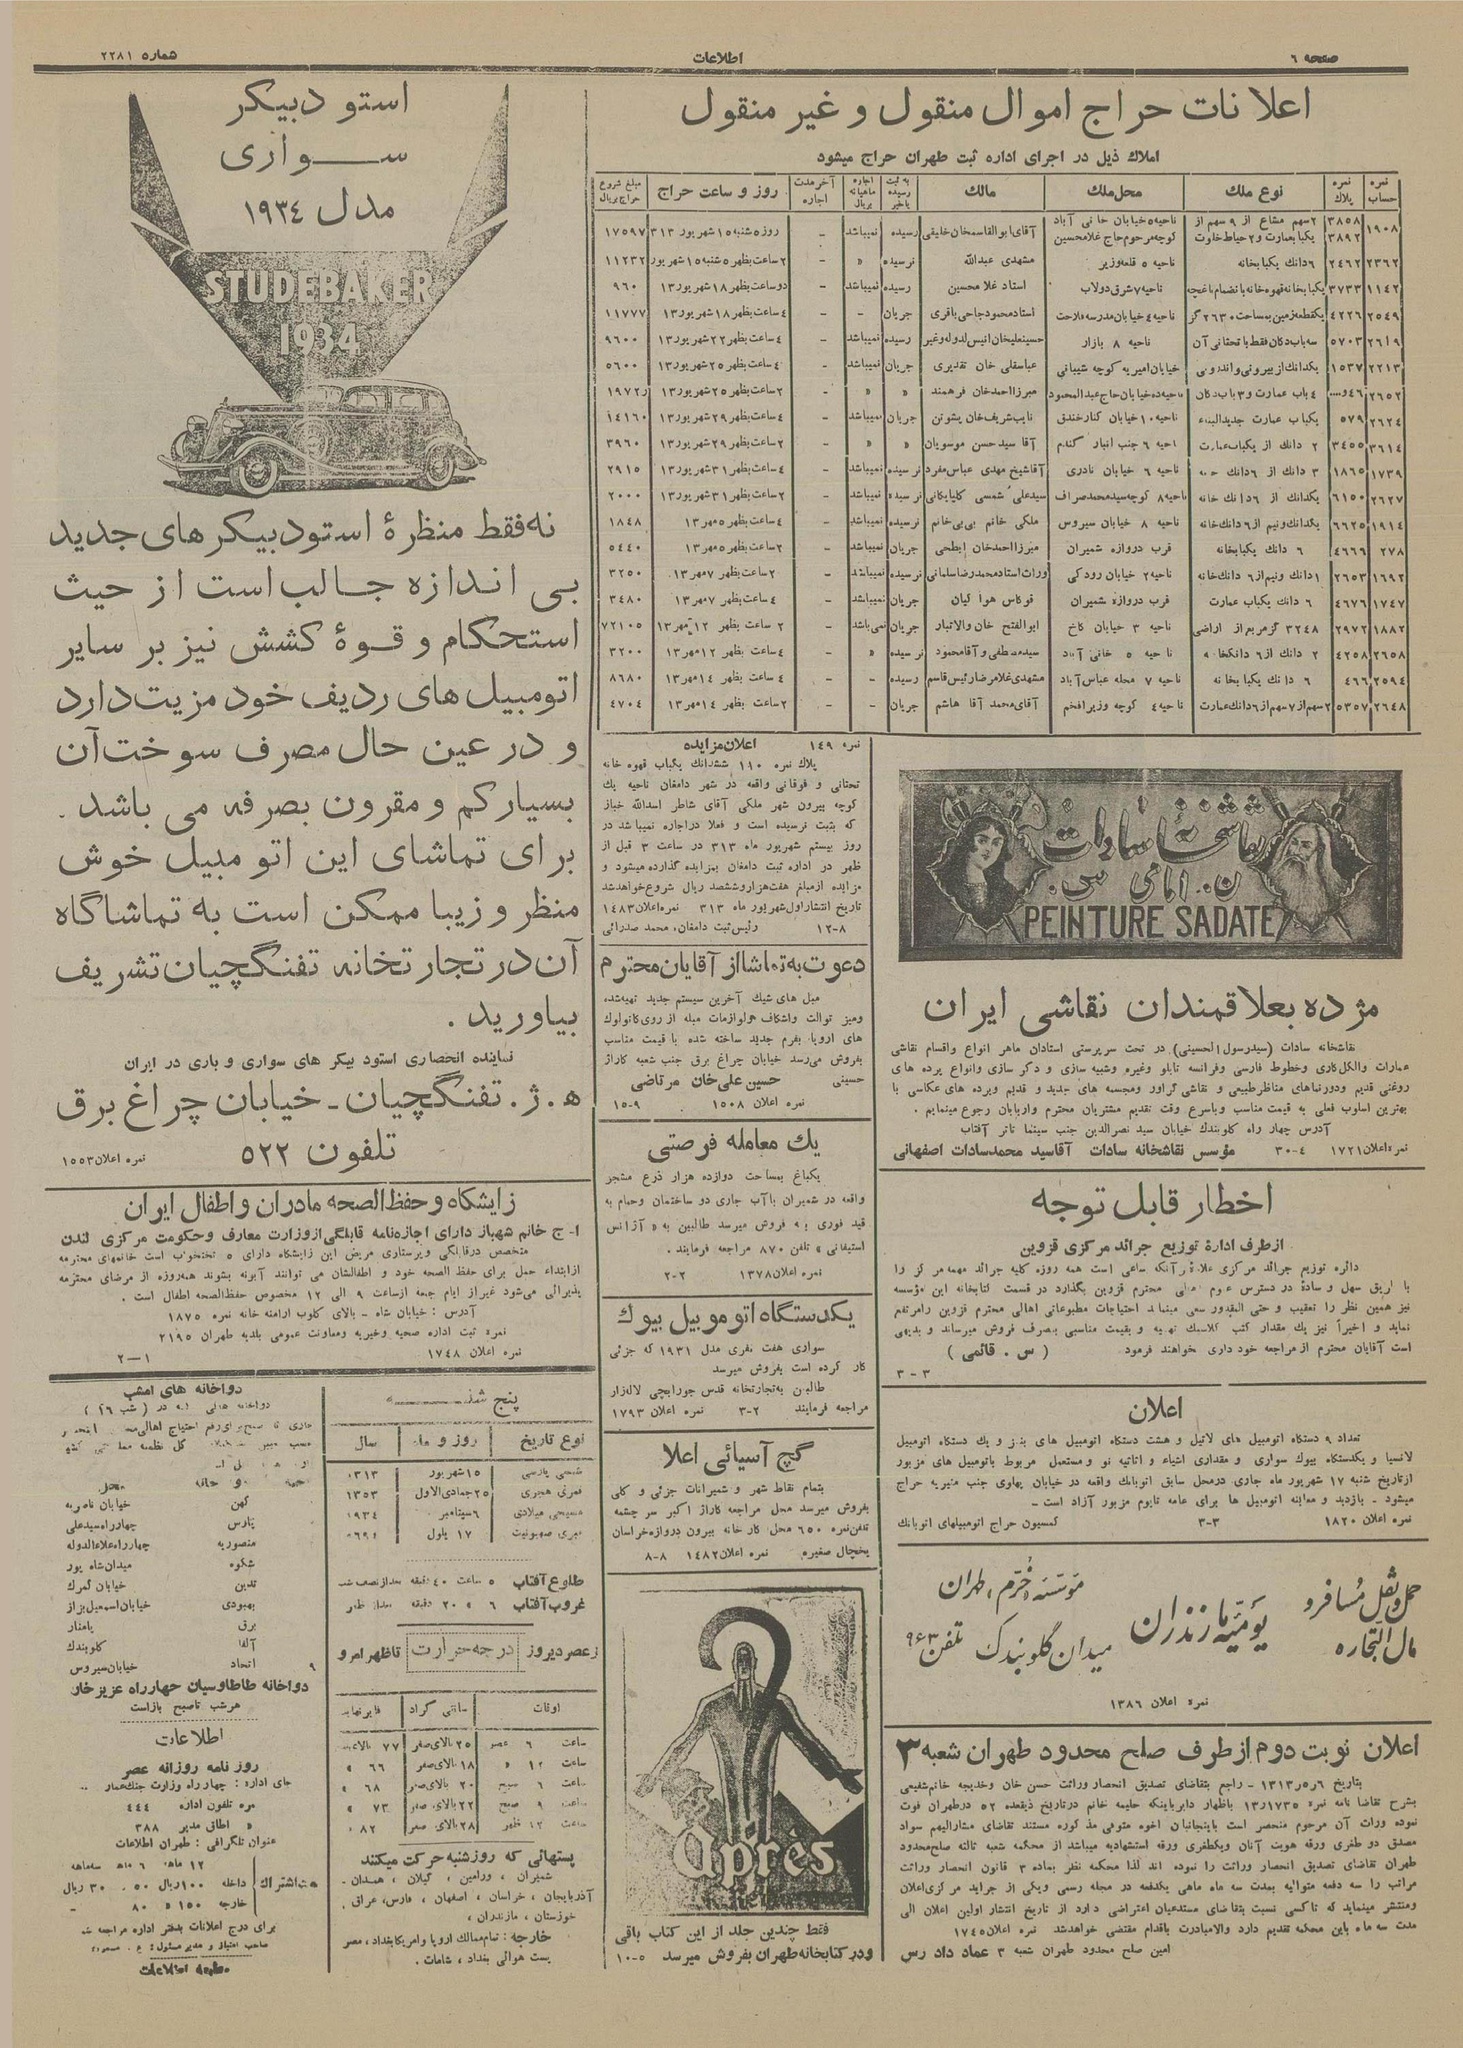 صفحه ٦
اطلاعات
شماره ٢٢٨١
اعلانات حراج اموال منقول و غیر منقول
املاک ذیل در اجرای اداره ثبت طهران حراج میشود
نمره حساب نمره پلاک نوع ملک محل ملک مالک به ثبت رسیده یا خیر اجاره ماهیانه بریال آخر مدت اجاره روز و ساعت حراج مبلغ شروع حراج بریال
١٩٠٨ ٣٨٥٨ ٣٨٩٢ ٢سهم مشاع از ٩ سهم از یکبابعمارت و ٢ حیاط خلوت ناحیه ٥ خیابان خانی آباد کوچه مرحوم حاج غلامحسین آقای ابوالقاسمخان خلیفی رسیده نمیباشد - روز ٥ شنبه ١٥ شهریور ٣١٣ ١٧٥٩٧
٢٣٦٢ ٢٤٦٢ ٦ دانك یکبابخانه ناحیه ٥ قلعه وزیر مشهدی عبدالله نرسیده » - ٢ساعت بظهر ٥شنبه ١٥ شهریور ١١٢٣٢
١١٤٢ ٣٧٣٣ یکبابخانه قهوه خانه بانضمام باغچه ناحیه ٧ شرق دولاب استاد غلامحسین رسیده نمیباشد - دو ساعت بظهر ١٨ شهریور ١٣ ٩٦٠
٢٥٤٩ ٤٢٢٦ یکقطعه زمین بمساحت ٢٦٣٠ گز ناحیه ٤ خیابان مدرسه فلاحت استاد محمود حاجی باقری جریان - - ٤ ساعت بظهر ١٨ شهریور ١٣ ١١٧٧٧
٢٦١٩ ٥٧٠٣ سه باب دکان فقط با تحتانی آن ناحیه ٨ بازار حسینعلیخان انیس لدوله وغیر رسیده نمیباشد - ٤ ساعت بظهر ٢٢ شهریور ١٣ ٩٦٠٠
٢٢١٣ ١٥٣٧ یکدانك از بیرونی و اندرونی خیابان امیریه کوچه شیبانی عباسقلی خان تقدیری جریان نمیباشد - ٤ ساعت بظهر ٢٥ شهریور ١٣ ٥٦٠٠
٢٦٥٢ ٤ باب عمارت و ٣ باب دکان ناحیه ٥ خیابان حاج عبدالمحمود میرزا احمدخان فرهمند » » - ٢ ساعت بظهر ٢٥ شهریور ١٣
٢٦٢٤ ٥٧٩ یکباب عمارت جدیدالبناء ناحیه ١٠ خیابان کنار خندق نایب شریف خان پشوتن جریان نمیباشد - ٤ ساعت بظهر ٢٩ شهریور ١٣ ١٤١٦٠
٣٦١٤ ٣٤٥٥ ٢ دانك از یکباب عمارت ناحیه ٦ جنب انبار گندم آقا سید حسن موسویان » » - ٢ ساعت بظهر ٢٩ شهریور ١٣ ٣٩٦٠
١٧٣٩ ١٨٦٥ ٣ دانك از ٦ دانك خانه ناحیه ٦ خیابان نادری آقا شیخ مهدی عباس مفرد نرسیده نمیباشد - ٤ ساعت بظهر ٣١ شهریور ١٣ ٢٩١٥
٢٦٢٧ ٦١٥٠ یکدانك از ٦ دانك خانه ناحیه ٨ کوچه سید محمد صراف سید علی شمسی گلپایگانی نرسیده نمیباشد - ٢ ساعت بظهر ٣١ شهریور ١٣ ٢٠٠٠
١٩١٤ ٦٦٢٥ یکدانك ونیم از ٦ دانك خانه ناحیه ٨ خیابان سیروس ملکی خانم بی بی خانم نرسیده نمیباشد - ٤ ساعت بظهر ٥ مهر ١٣ ١٨٤٨
٢٧٨ ٤٦٦٩ ٦ دانك یکبابخانه قرب دروازه شمیران میرزا احمدخان ابطحی جریان نمیباشد - ٢ ساعت بظهر ٥ مهر ١٣ ٥٤٤٠
١٦٩٢ ٢٦٥٣ ١دانك ونیم از ٦ دانك خانه ناحیه ٢ خیابان رودکی وراث استاد محمد رضا سلمانی نرسیده نمیباشد - ٢ ساعت بظهر ٧ مهر ١٣ ٣٢٥٠
١٧٤٧ ٤٦٧٦ ٦ دانك یکباب عمارت قرب دروازه شمیران قوکاس هوا کیان جریان نمیباشد - ٤ ساعت بظهر ٧ مهر ١٣ ٣٤٨٠
١٨٨٢ ٢٩٧٢ ٣٢٤٨ گز مربع از اراضی ناحیه ٣ خیابان کاخ ابوالفتح خان والاتبار جریان نمی باشد - ٢ ساعت بظهر ١٢ مهر ١٣ ٧٢١٠٥
٢٦٥٨ ٤٢٥٨ ٢ دانك از ٦ دانکخانه ناحیه ٥ خانی آباد سید مصطفی و آقا محمود نرسیده » - ٤ ساعت بظهر ١٢ مهر ١٣ ٣٢٠٠
٢٥٩٤ ٤٦٦ ٦ دانك یکبابخانه ناحیه ٧ محله عباس آباد مشهدی غلامرضا رئیس قاسم رسیده - - ٤ ساعت بظهر ١٤ مهر ١٣ ٨٦٨٠
٢٦٤٨ ٥٣٥٧ ٢سهم از ٧ سهم از ٦ دانك عمارت ناحیه ٤ کوچه وزیر افخم آقای محمد آقا هاشم جریان - - ٢ ساعت بظهر ١٤ مهر ١٣ ٤٧٠٤
نقاشخانه سادات
ن. امامی س.
PEINTURE SADATE
مژده بعلاقمندان نقاشی ایران
نقاشخانه سادات (سیدرسول الحسینی) در تحت سرپرستی استادان ماهر انواع واقسام نقاشی
عمارات والکل کاری وخطوط فارسی وفرانسه تابلو وغیره وشبیه سازی و دکر سازی وانواع پرده های
روغنی قدیم ودورنماهای مناظر طبیعی و نقاشی گراور ومجسمه های جدید و قدیم وپرده های عکاسی با
بهترین اسلوب فعلی به قیمت مناسب وباسرع وقت تقدیم مشتریان محترم واربابان رجوع مینمایم .
آدرس چهار راه گلوبندك خیابان سید نصرالدین جنب سینما تاتر آفتاب
نمره اعلان ١٧٢١ ٤-٣٠ مؤسس نقاشخانه سادات آقاسید محمد سادات اصفهانی
اخطار قابل توجه
از طرف ادارۀ توزیع جرائد مرکزی قزوین
دائره توزیع جرائد مرکزی علاوه بر آنکه ساعی است همه روزه کلیه جرائد مهمه مرکز را
با طریق سهل و سادۀ در دسترس عموم اهالی محترم قزوین بگذارد در قسمت کتابخانه این مؤسسه
نیز همین نظر را تعقیب و حتی المقدور سعی مینماید احتیاجات مطبوعاتی اهالی محترم قزوین را مرتفع
نماید و اخیراً نیز یك مقدار کتب کلاسیك تهیه و بقیمت مناسبی بمصرف فروش میرساند و بدیهی
است آقایان محترم از مراجعه خود داری خواهند فرمود ( س . قائمی )
٣ - ٣
اعلان
تعداد ٩ دستگاه اتومبیل های لاتیل و هشت دستگاه اتومبیل های بنز و یك دستگاه اتومبیل
لانسیا و یکدستگاه بیوك سواری و مقداری اشیاء و اثاثیه نو و مستعمل مربوط باتومبیل های مزبور
از تاریخ شنبه ١٧ شهریور ماه جاری درمحل سابق اتوبانك واقعه در خیابان پهلوی جنب منیریه حراج
میشود - بازدید و معاینه اتومبیل ها برای عامه تایوم مزبور آزاد است -
نمره اعلان ١٨٢٠ ٣-٣ کمسیون حراج اتومبیلهای اتوبانك
حمل و نقل مسافر و مال التجاره
یومیه مازندران
مؤسسه خرم، طهران
میدان گلوبندك تلفن ٩٦٣
نمره اعلان ١٣٨٦
اعلان نوبت دوم از طرف صلح محدود طهران شعبه ٣
بتاریخ ٦ر٥ر١٣١٣ - راجع بتقاضای تصدیق انحصار وراثت حسن خان وخدیجه خانم شفیعی
بشرح تقاضا نامه نمره ١٣ر١٧٣٥ باظهار دایر باینکه حلیمه خانم درتاریخ ذیقعده ٥٢ درطهران فوت
نموده وراث آن مرحوم منحصر است باینجانبان اخوه متوفی مذکوره مستند تقاضای مشارالیهم سواد
مصدق دو طغری ورقه هویت آنان ویکطغری ورقه استشهادیه میباشد از محکمه شعبه ثالثه صلح محدود
طهران تقاضای تصدیق انحصار وراثت را نموده اند لذا محکمه نظر بماده ٣ قانون انحصار وراثت
مراتب را سه دفعه متوالیه بمدت سه ماه ماهی یکدفعه در مجله رسمی ویکی از جراید مرکزی اعلان
ومنتشر مینماید که تا کسی نسبت بتقاضای مستدعیان اعتراضی دارد از تاریخ انتشار اولین اعلان الی
مدت سه ماه باین محکمه تقدیم دارد والامبادرت باقدام مقتضی خواهد شد نمره اعلان ١٧٤٥
امین صلح محدود طهران شعبه ٣ عماد داد رس
نمره ١٤٩ اعلان مزایده
پلاك نمره ١١٠ ششدانك یکباب قهوه خانه
تحتانی و فوقانی واقعه در شهر دامغان ناحیه یك
کوچه بیرون شهر ملکی آقای شاطر اسدالله خباز
که بثبت نرسیده است و فعلا دراجاره نمیباشد در
روز بیستم شهریور ماه ٣١٣ در ساعت ٣ قبل از
ظهر در اداره ثبت دامغان بمزایده گذارده میشود و
مزایده از مبلغ هفت هزار وششصد ریال شروع خواهد شد
تاریخ انتشار اول شهریور ماه ٣١٣ نمره اعلان ١٤٨٣
٨-١٢ رئیس ثبت دامغان، محمد صدرائی
دعوت به تماشا از آقایان محترم
مبل های شیك آخرین سیستم جدید تهیه شده
ومیز توالت واشکاف ولوازمات مبله از روی کاتولوك
های اروپا بفرم جدید ساخته شده با قیمت مناسب
بفروش میرسد خیابان چراغ برق جنب شعبه کاراژ
حسینی حسین علی خان مرتاضی
نمره اعلان ١٥٠٨ ٩-١٥
یك معامله فرصتی
یکباغ بمساحت دوازده هزار ذرع مشجر
واقعه در شمیران با آب جاری دو ساختمان وحمام به
قید فوری به فروش میرسد طالبین به « آژانس
استیفانی » تلفن ٨٧٠ مراجعه فرمایند .
نمره اعلان ١٣٧٨ ٢-٢
یکدستگاه اتوموبیل بیوك
سواری هفت نفری مدل ١٩٣١ که جزئی
کار کرده است بفروش میرسد
طالبین به تجارتخانه قدس جورابچی لاله زار
مراجعه فرمایند ٢-٣ نمره اعلان ١٧٩٣
گچ آسیائی اعلا
بتمام نقاط شهر و شمیرانات جزئی و کلی
بفروش میرسد محل مراجعه کاراژ اکبر سر چشمه
تلفن نمره ٦٥٠ محل کار خانه بیرون دروازه خراسان
یخچال صغیره نمره اعلان ١٤٨٢ ٨-٨
après
فقط چندین جلد از این کتاب باقی
ودر کتابخانه طهران بفروش میرسد ٥-١٠
استودبیکر
سواری
مدل ١٩٣٤
STUDEBAKER
1934
نه فقط منظرۀ استودبیکر های جدید
بی اندازه جالب است از حیث
استحکام و قوۀ کشش نیز بر سایر
اتومبیل های ردیف خود مزیت دارد
و در عین حال مصرف سوخت آن
بسیار کم و مقرون بصرفه می باشد .
برای تماشای این اتومبیل خوش
منظر و زیبا ممکن است به تماشاگاه
آن در تجارتخانه تفنگچیان تشریف
بیاورید .
نماینده انحصاری استود بیکر های سواری و باری در ایران
ه . ژ . تفنگچیان - خیابان چراغ برق
تلفون ٥٢٢ نمره اعلان ١٥٥٣
زایشگاه و حفظ الصحه مادران و اطفال ایران
ا- ج خانم شهباز دارای اجازه نامه قابلگی از وزارت معارف وحکومت مرکزی لندن
متخصص درقابلگی وپرستاری مریض این زایشگاه دارای ٥ تختخواب است خانمهای محترمه
از ابتداء حمل برای حفظ الصحه خود و اطفالشان می توانند آبونه بشوند همه روزه از مرضای محترمه
پذیرائی می شود غیر از ایام جمعه از ساعت ٩ الی ١٢ مخصوص حفظ الصحه اطفال است .
آدرس : خیابان شاه - بالای کلوب ارامنه خانه نمره ١٨٧٥
نمره ثبت اداره صحیه وخیریه ومعاونت عمومی بلدیه طهران ٢١٩٥
نمره اعلان ١٧٤٨ ١-٢
پنج شنبه
نوع تاریخ روز و ماه سال
شمسی پارسی ١٥ شهریور ١٣١٣
قمری هجری ٢٥ جمادی الاول ١٣٥٣
مسیحی میلادی ٦ سپتامبر ١٩٣٤
١٧ یلول
طلوع آفتاب ٥ ساعت ٤٠ دقیقه بعد از نصف شب
غروب آفتاب ٦ » ٢٠ دقیقه بعد از ظهر
از عصر دیروز درجه حرارت تا ظهر امروز
اوقات سانتی گراد فارنهایت
ساعت ٦ عصر ٢٥ بالای صفر ٧٧ بالای صفر
ساعت ١٢ » ١٨ بالای صفر ٦٦ »
ساعت ٦ صبح ٢٠ بالای صفر ٦٨ »
ساعت ٩ صبح ٢٢ بالای صفر ٧٣ »
ساعت ١٢ ظهر ٢٨ بالای صفر ٨٢ »
پستهائی که روز شنبه حرکت میکند
شمیران ، ورامین ، گیلان ، همدان -
آذربایجان ، خراسان ، اصفهان ، فارس، عراق،
خوزستان ، مازندران ،
خارجه : تمام ممالك اروپا وامریکا بغداد، مصر
پست هوائی بغداد ، شامات .
دواخانه های امشب
محل
کهن خیابان ناصریه
پارس چهارراه سید علی
منصوریه چهارراه علاءالدوله
شکوه میدان شاه پور
تدین خیابان گمرك
بهبودی خیابان اسمعیل بزاز
برق پامنار
آلفا گلوبندك
اتحاد خیابان سیروس
دواخانه طاطاوسیان چهارراه عزیز خان
هر شب تا صبح باز است
اطلاعات
روز نامه روزانه عصر
جای اداره : چهار راه وزارت جنك عمار
نمره تلفون اداره ٤٤٤
» اطاق مدیر ٣٨٨
عنوان تلگرافی : طهران اطلاعات
١٢ ماهه ٦ ماهه سه ماهه
وجه اشتراك داخله ١٠٠ ریال ٥٠ ٣٠ ریال
خارجه ١٥٠ » ٨٠ -
برای درج اعلانات بدفتر اداره مراجعه شود
صاحب امتیاز و مدیر مسئول: ع. مسعودی
مطبعه اطلاعات